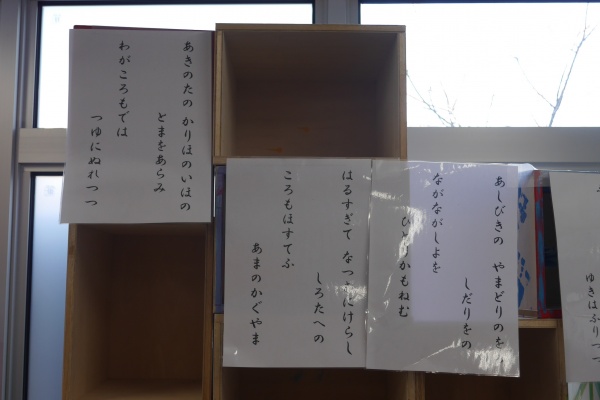 あきのたの かりほのいほの
とまをあらみ
わがころもでは
つゆにぬれつつ
はるすぎて なつ にけらし
しろたへの
ころもほすてふ
あまのかぐやま
あしびきの やまどりのを
しだりをの
ながながしよを
ひとりかもねむ
ゆきはふりつつ